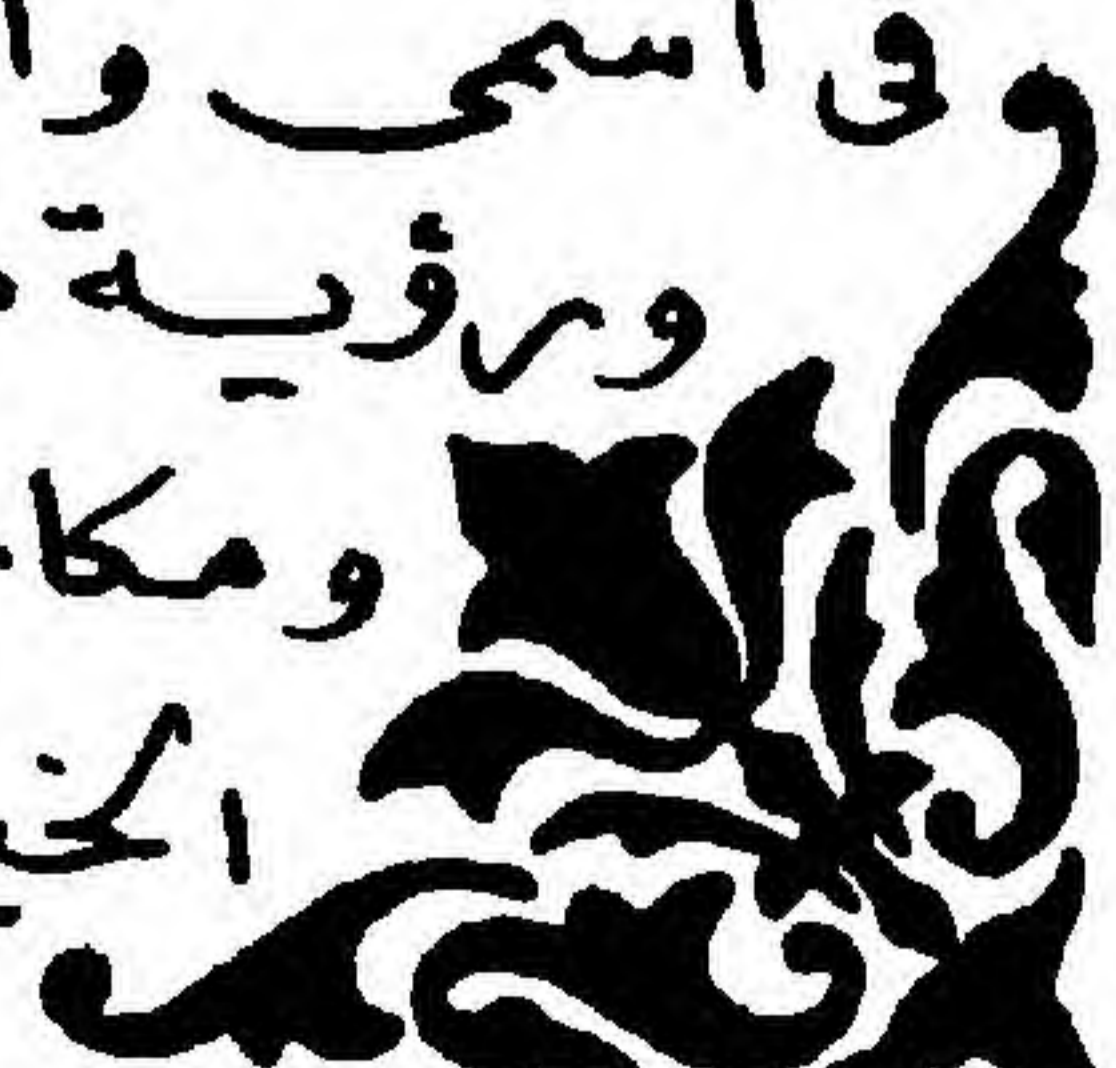 فى اسمى وا
ورؤية
ومكا